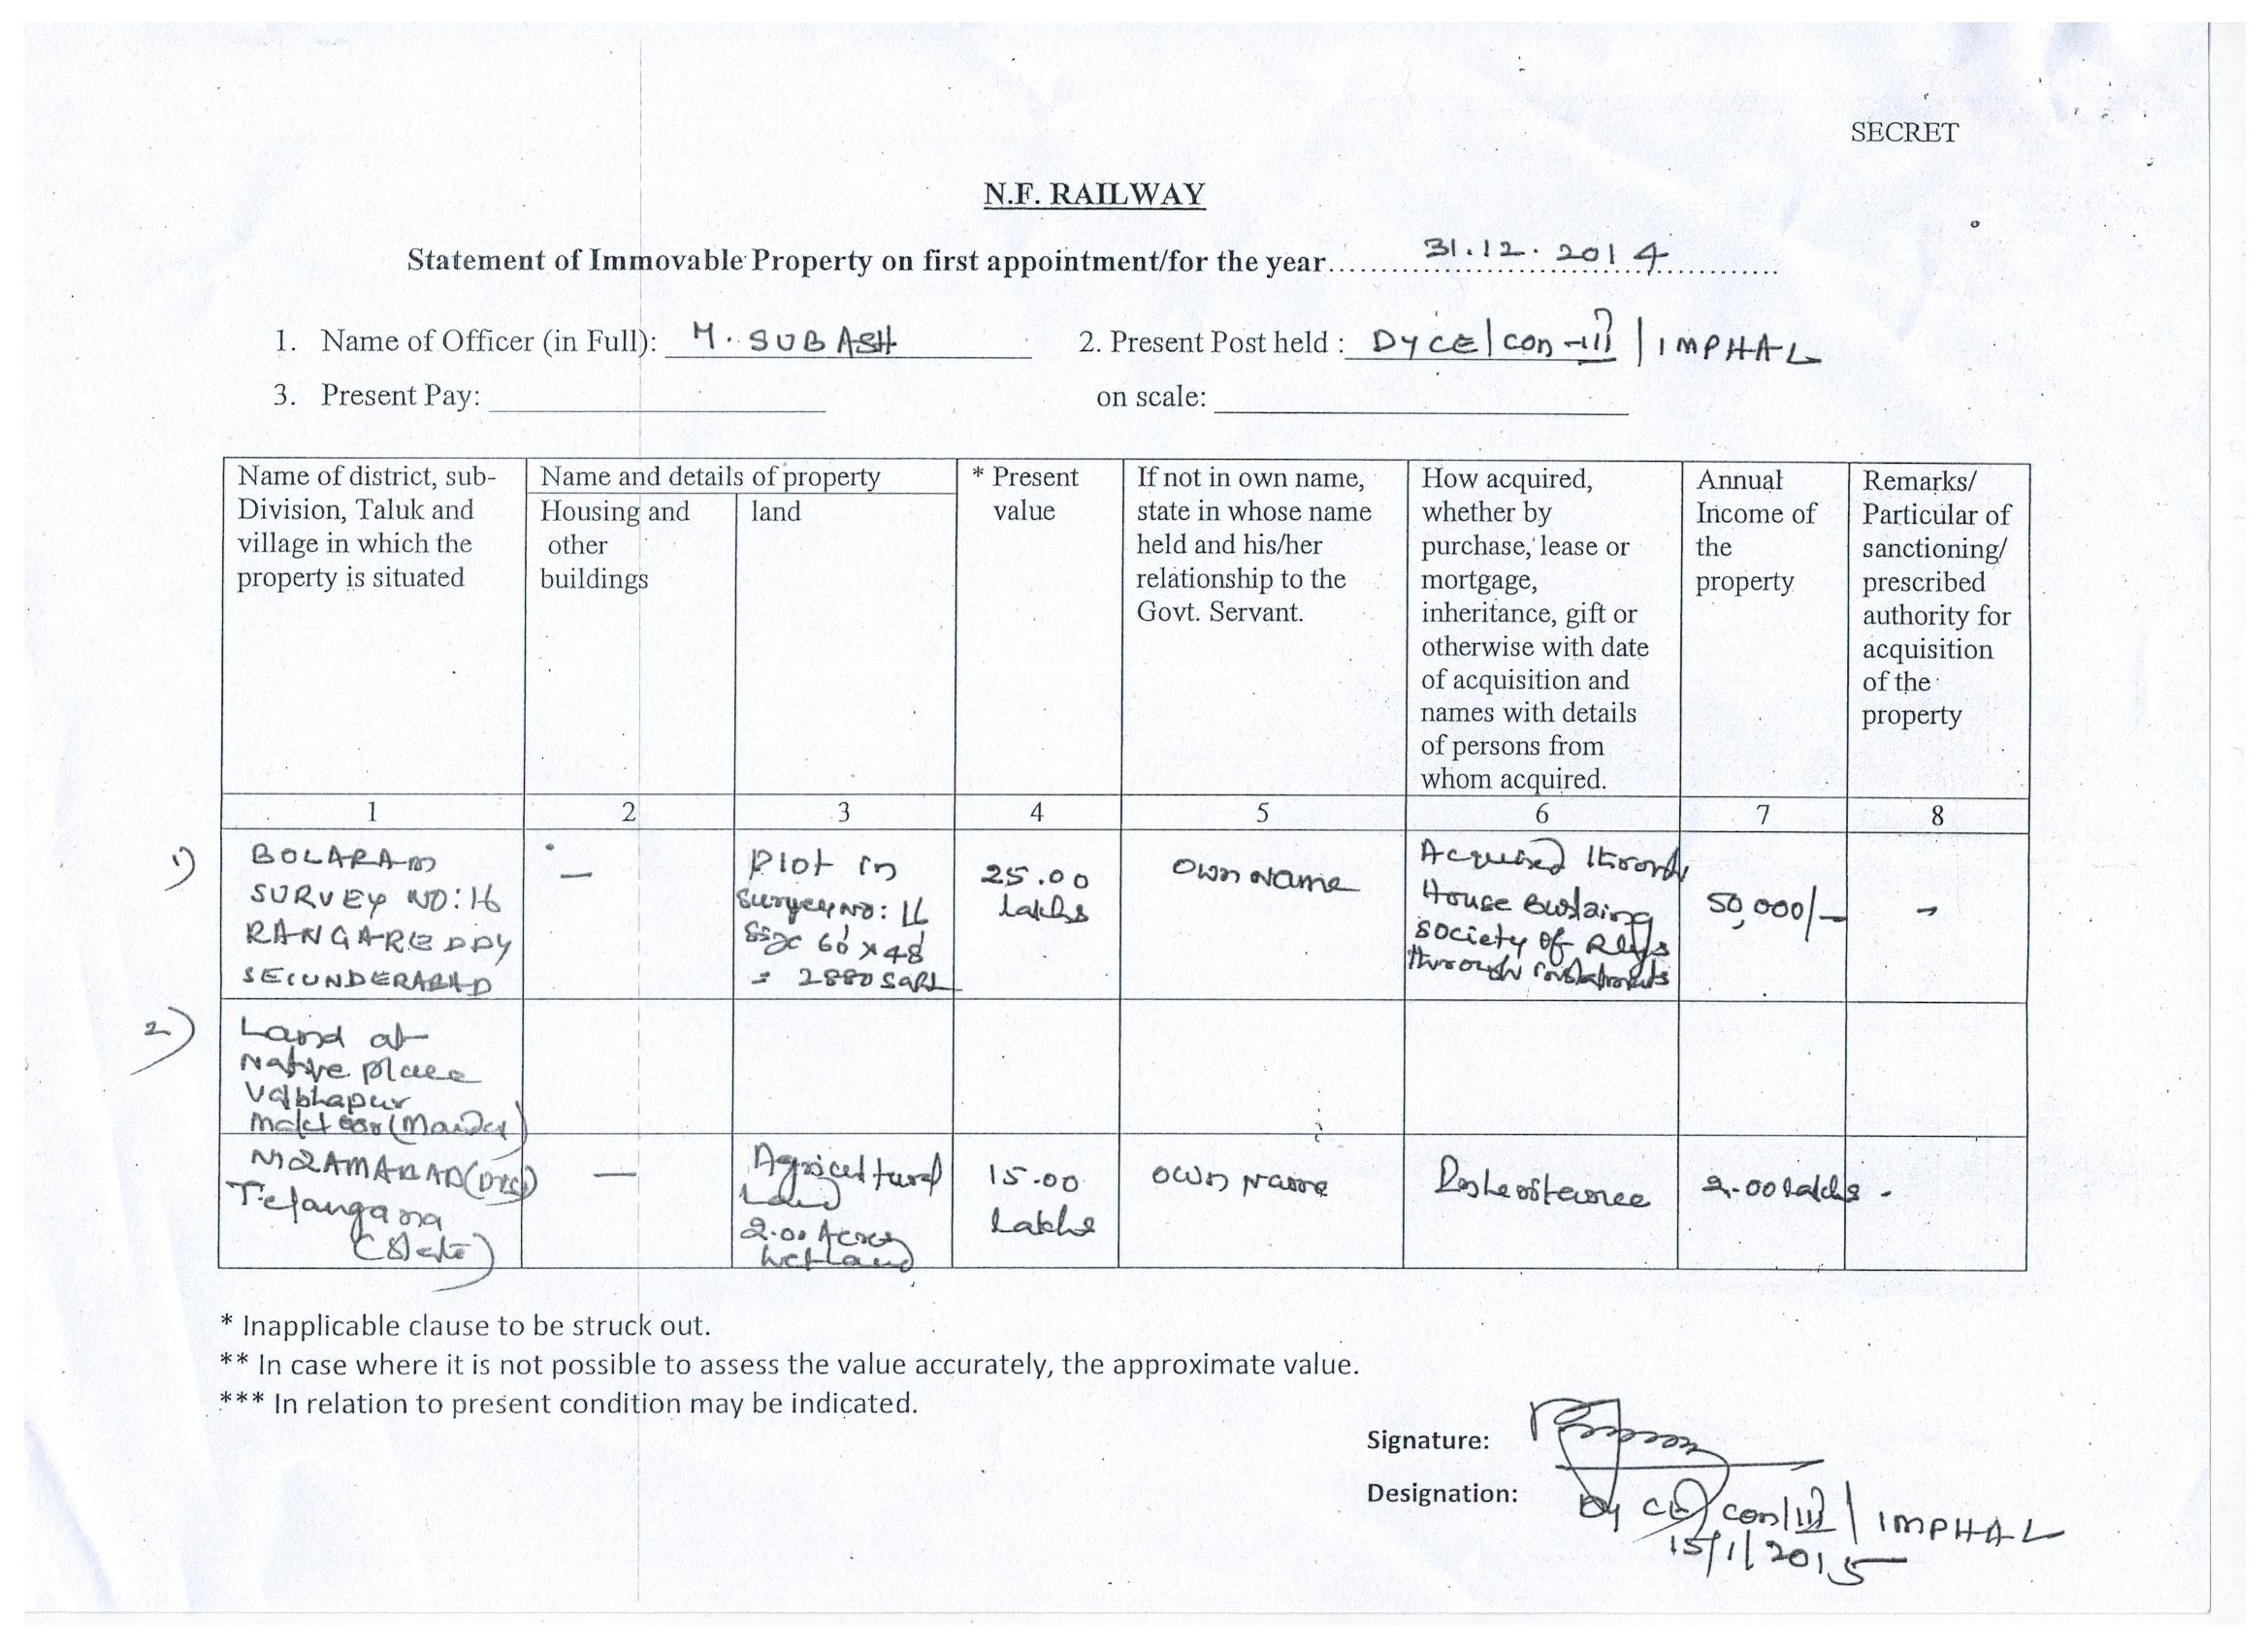 SECRET
N.F. RAILWAY
Statement of Immovable Property on first appointment/for the year 31.12.2014
1. Name of Officer (in Full): M. SUBASH 2. Present Post held : DYCE/CON-III/IMPHAL
3. Present Pay: on scale:
Name of district, sub-
Division, Taluk and
village in which the
property is situated
Name and details of property
Housing and
other
buildings
land
* Present
value
If not in own name,
state in whose name
held and his/her
relationship to the
Govt. Servant.
How acquired,
whether by
purchase, lease or
mortgage,
inheritance, gift or
otherwise with date
of acquisition and
names with details
of persons from
whom acquired.
Annual
Income of
the
property
Remarks/
Particular of
sanctioning/
prescribed
authority for
acquisition
of the
property
1 2 3 4 5 6 7 8
1)
BOLARAM
SURVEY NO: 16
RANGAREDDY
SECUNDERABAD
—
Plot in
Survey No: 16
Size 60' x 48'
= 2880
25.00
lakhs
Own Name
Acquired through
House Building
Society of Rlys
through instalments
50,000/-
-
2)
Land at
Native place
(Mandal)
NIZAMABAD (Dist)
Telangana
(State)
—
Agricultural
Land
2.00 Acres
wetland
15.00
Lakhs
Own Name
Inheritance
2.00 lakhs -
* Inapplicable clause to be struck out.
** In case where it is not possible to assess the value accurately, the approximate value.
*** In relation to present condition may be indicated.
Signature:
Designation:
Dy CE/Con/III/IMPHAL
15/1/2015